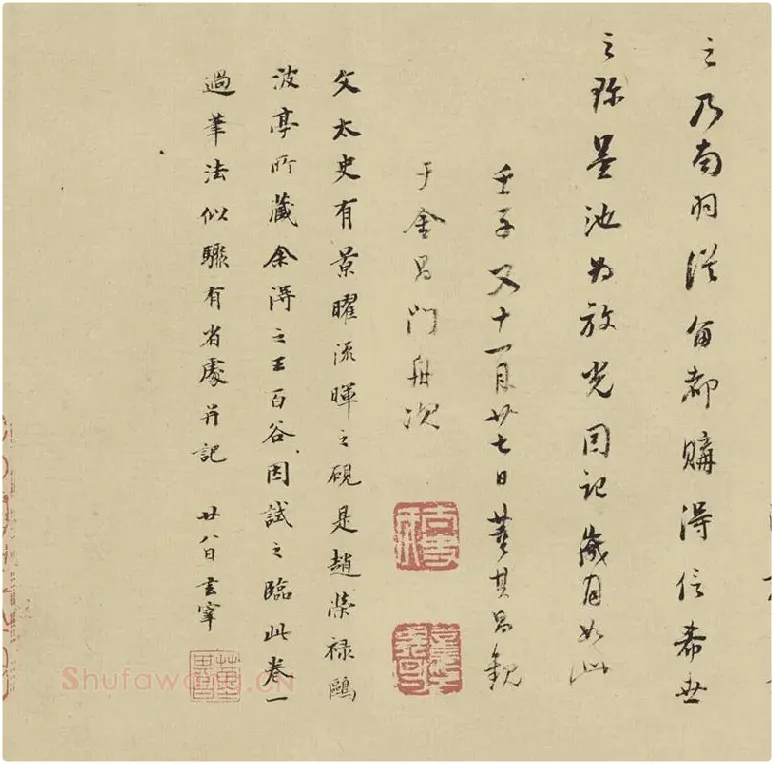 之乃南羽從留都購得信希世
之珎墨池為放光因記歲月如此
壬子又十一月廿七日董其昌觀
于金昌門舟次
文太史有景曜流暉之硯是趙榮祿鷗
波亭所藏余得之王百谷因試之臨此卷一
過筆法似驟有省處并記 廿八日玄宰
Shufawang.CN